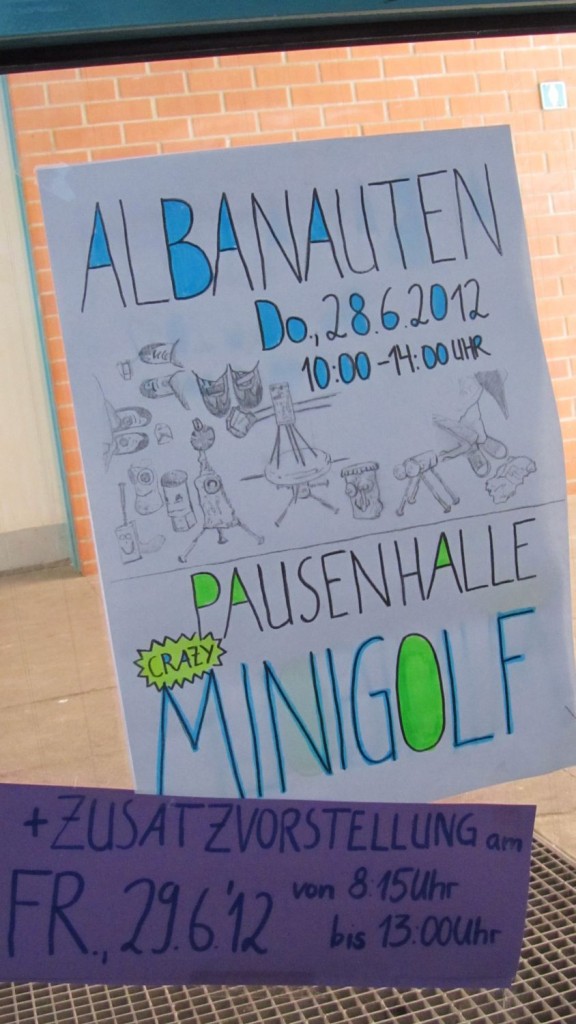 ALBANAUTEN
Do., 28.6.2012
10:00 - 14:00 UHR
PAUSENHALLE
CRAZY
MINIGOLF
+ ZUSATZVORSTELLUNG am
FR., 29.6.'12 von 8:15 Uhr
bis 13:00 Uhr